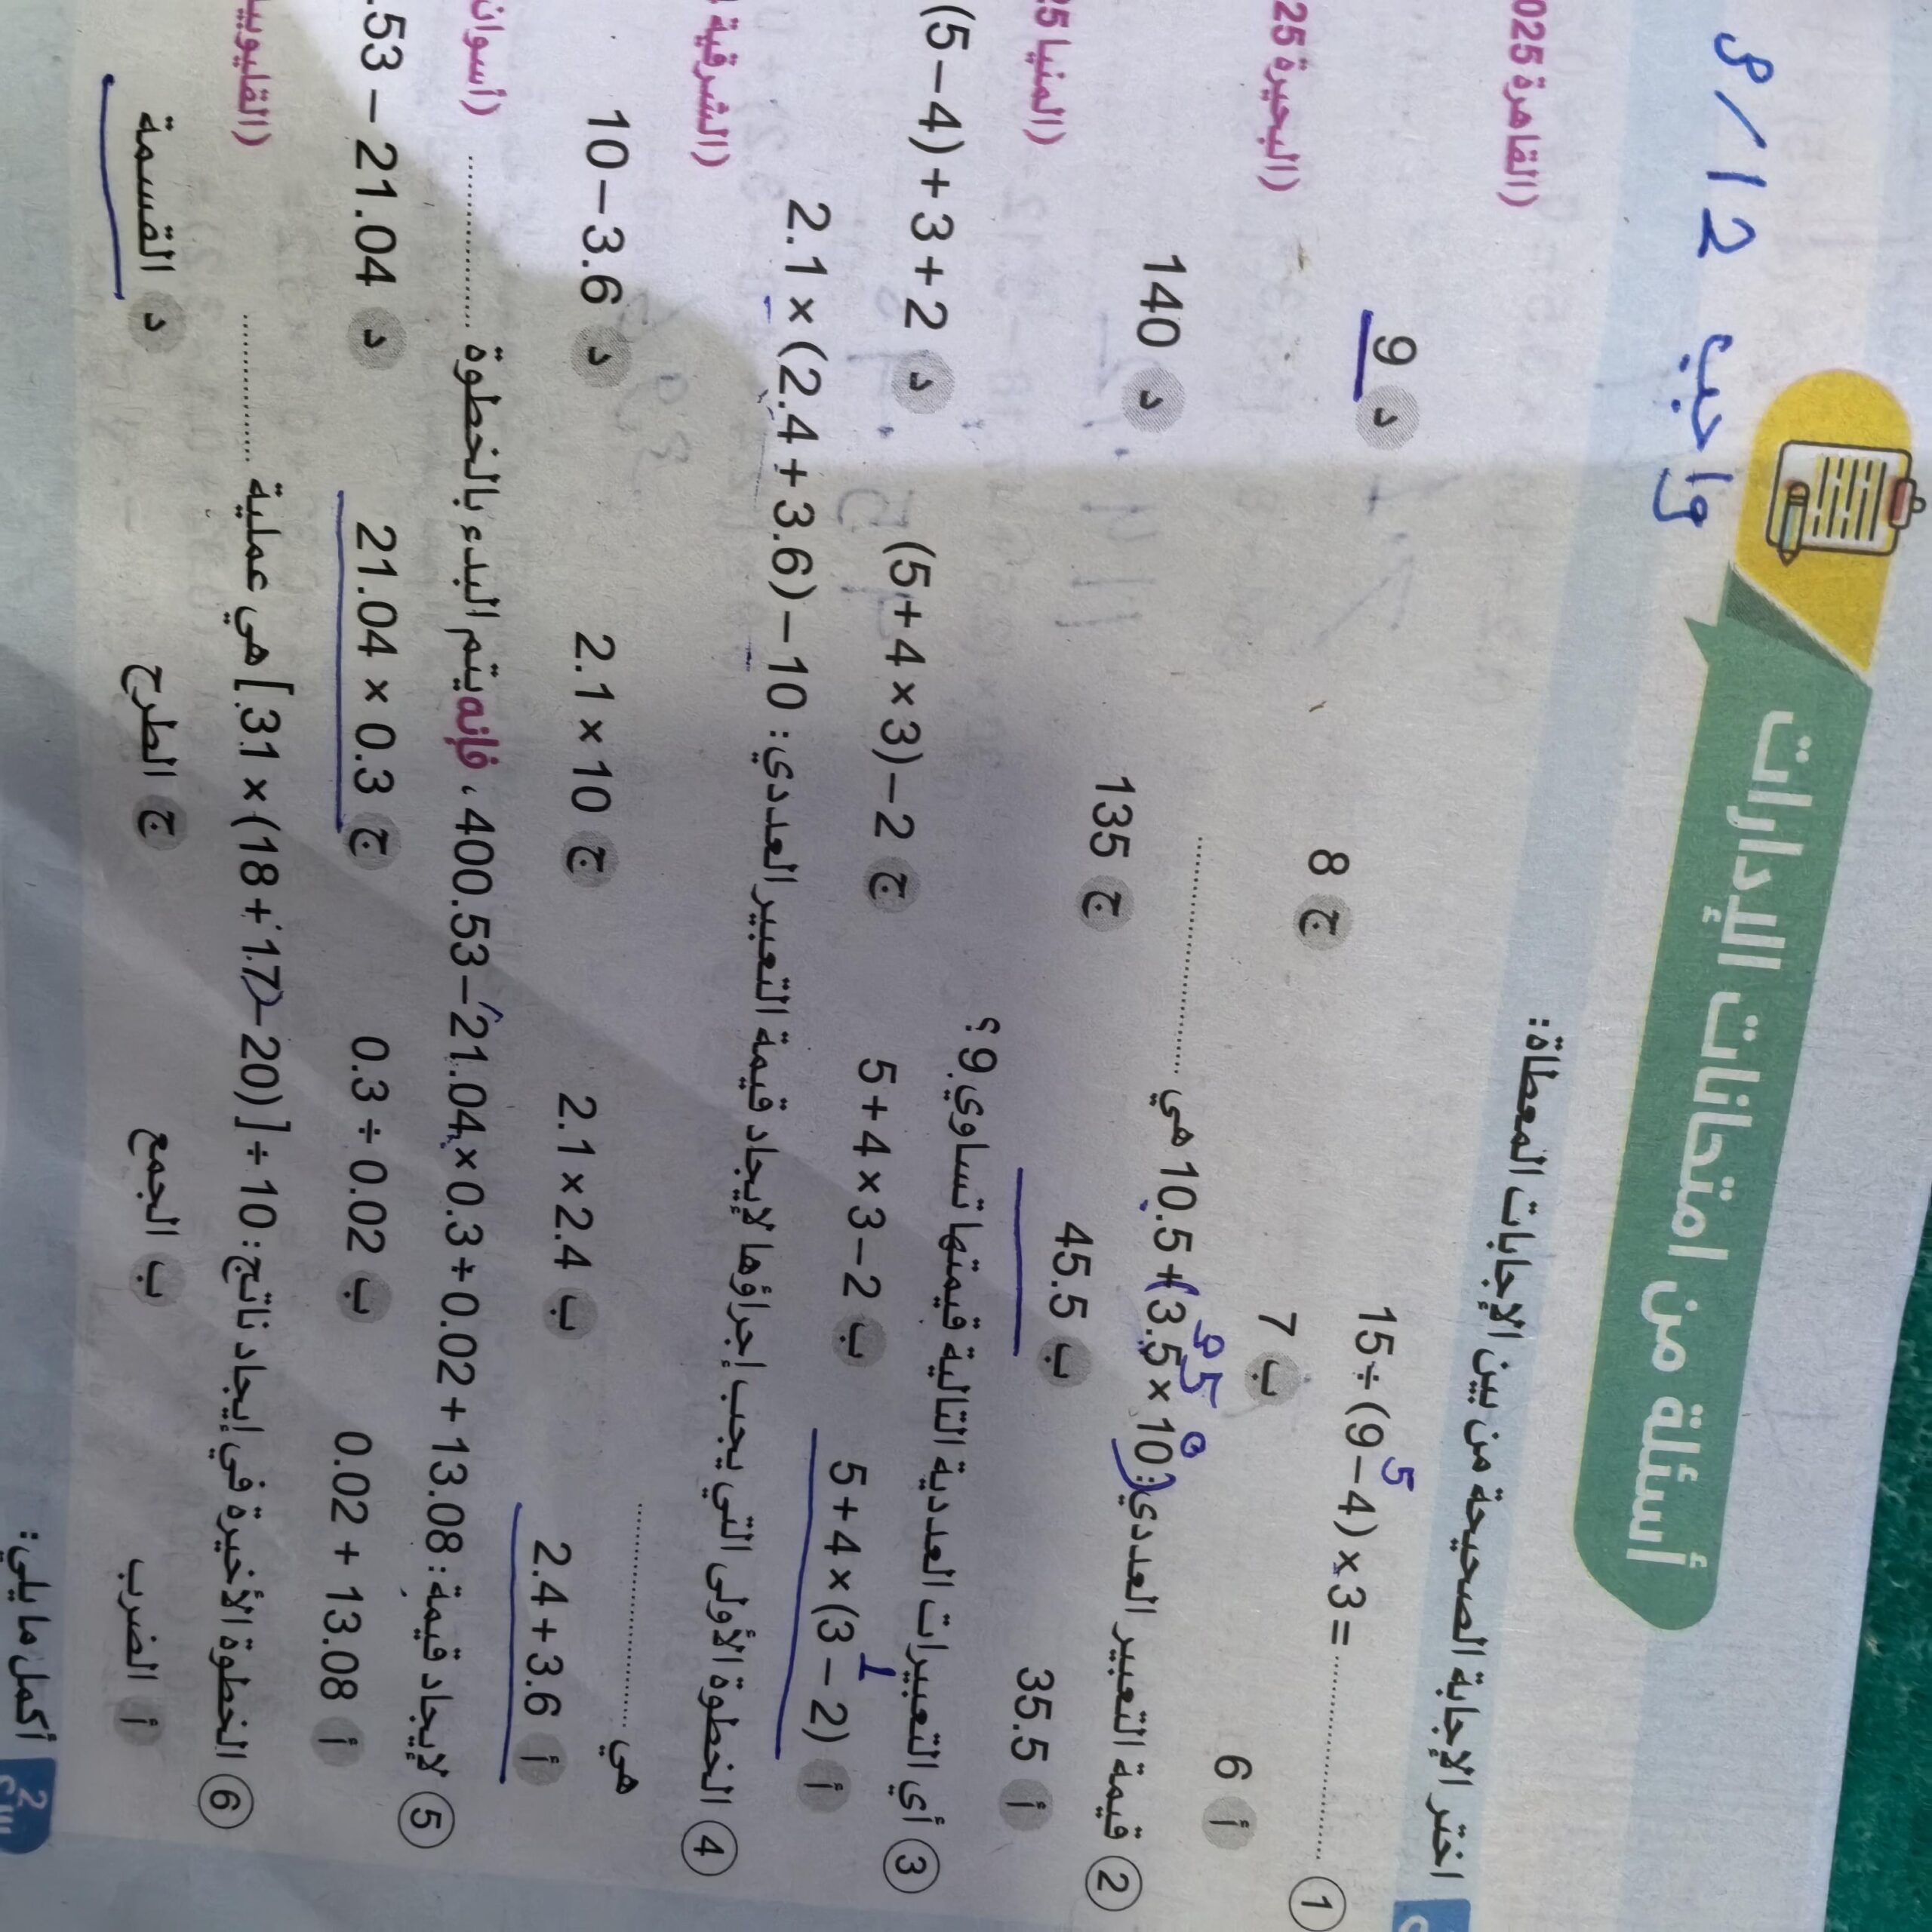 واجب 12/
أسئلة من امتحانات الإدارات
اختر الإجابة الصحيحة من بين الإجابات المعطاة:
① 15÷(9−4)×3= ............ (القاهرة 025
5
أ 6 ب 7 ج 8 د 9
② قيمة التعبير العددي: 10.5+(3.5×10) هي ............ (البحيرة 25
35.0
أ 35.5 ب 45.5 ج 135 د 140
③ أي التعبيرات العددية التالية قيمتها تساوي 9؟ (المنيا 25
1
أ 5+4×(3−2) ب 5+4×3−2 ج (5+4×3)−2 د (5−4)+3+2
④ الخطوة الأولى التي يجب إجراؤها لإيجاد قيمة التعبير العددي: 2.1×(2.4+3.6)−10
هي ............ (الشرقية
أ 2.4+3.6 ب 2.1×2.4 ج 2.1×10 د 10−3.6
⑤ لإيجاد قيمة: 400.53−21.04×0.3÷0.02+13.08 ، فإنه يتم البدء بالخطوة ............ (أسوان
أ 0.02+13.08 ب 0.3÷0.02 ج 21.04×0.3 د .53−21.04
⑥ الخطوة الأخيرة في إيجاد ناتج: [31×(18+17−20)]÷10 هي عملية ............ (القليوبية
أ الضرب ب الجمع ج الطرح د القسمة
2 أكمل ما يلي: